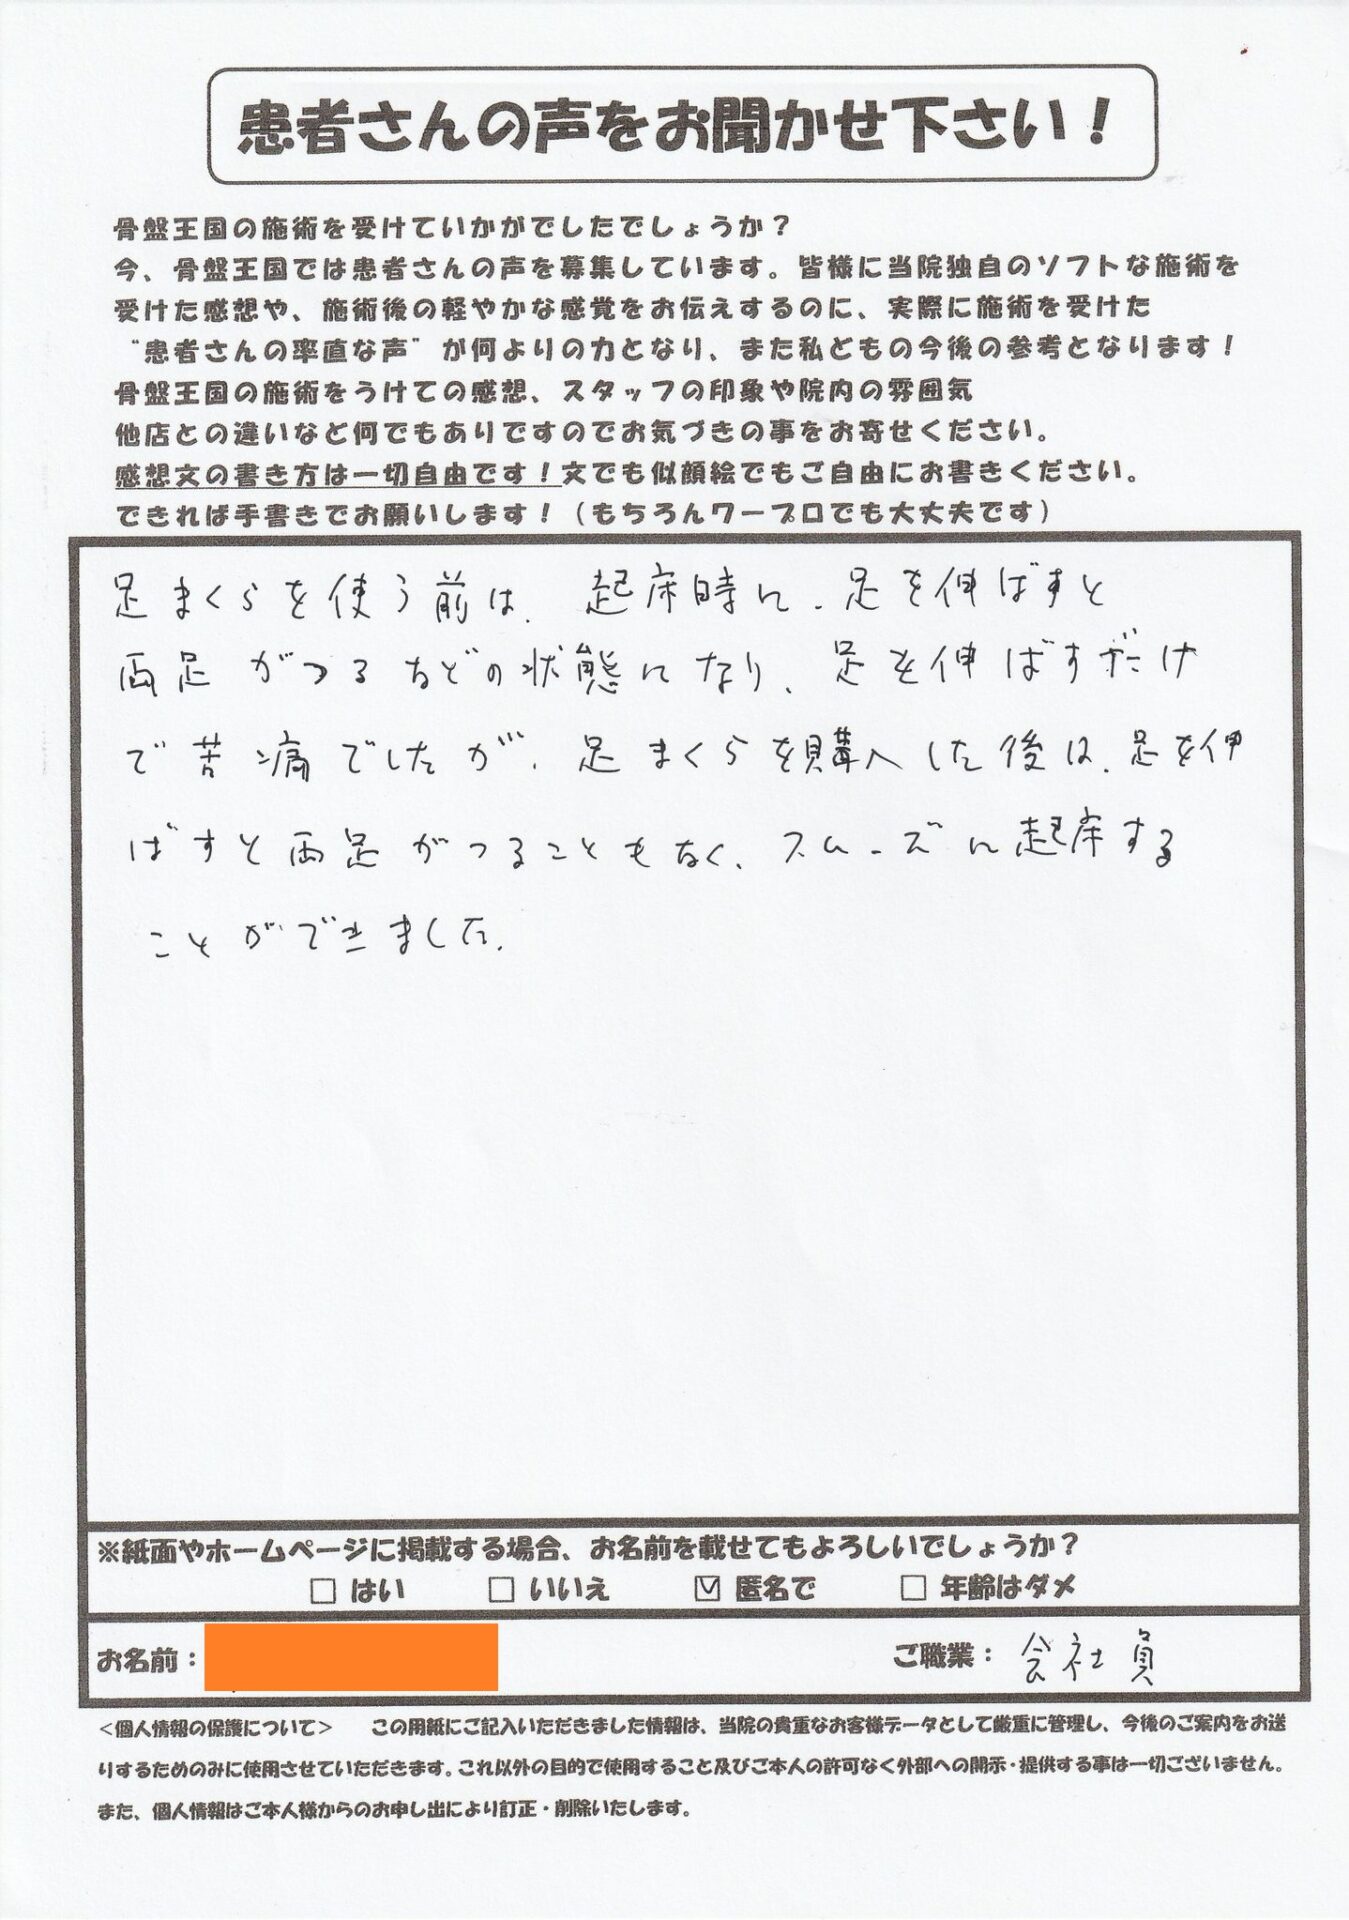 患者さんの声をお聞かせ下さい！
骨盤王国の施術を受けていかがでしたでしょうか？
今、骨盤王国では患者さんの声を募集しています。皆様に当院独自のソフトな施術を
受けた感想や、施術後の軽やかな感覚をお伝えするのに、実際に施術を受けた
“患者さんの率直な声”が何よりの力となり、また私どもの今後の参考となります！
骨盤王国の施術をうけての感想、スタッフの印象や院内の雰囲気
他店との違いなど何でもありですのでお気づきの事をお寄せください。
感想文の書き方は一切自由です！文でも似顔絵でもご自由にお書きください。
できれば手書きでお願いします！（もちろんワープロでも大丈夫です）
足まくらを使う前は、起床時に、足を伸ばすと
両足がつるなどの状態になり、足を伸ばすだけ
で苦痛でしたが、足まくらを購入した後は、足を伸
ばすと両足がつることもなく、スムーズに起床する
ことができました。
※紙面やホームページに掲載する場合、お名前を載せてもよろしいでしょうか？
□ はい □ いいえ ☑ 匿名で □ 年齢はダメ
お名前： ご職業： 会社員
＜個人情報の保護について＞ この用紙にご記入いただきました情報は、当院の貴重なお客様データとして厳重に管理し、今後のご案内をお送
りするためのみに使用させていただきます。これ以外の目的で使用すること及びご本人の許可なく外部への開示・提供する事は一切ございません。
また、個人情報はご本人様からのお申し出により訂正・削除いたします。